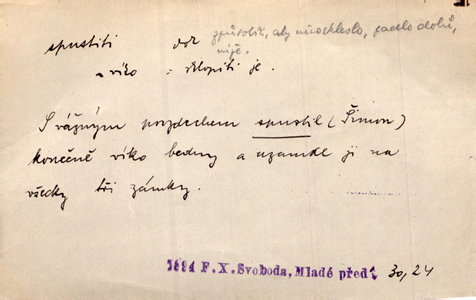 spustiti dok způsobit, aby něco kleslo, padlo dolů,
níže.
„ víko : sklopiti je.
S vážným povzdechem spustil (Šimon)
konečně víko bedny a uzamkl ji na
všecky tři zámky.
1894 F. X. Svoboda, Mladé před. 30, 24